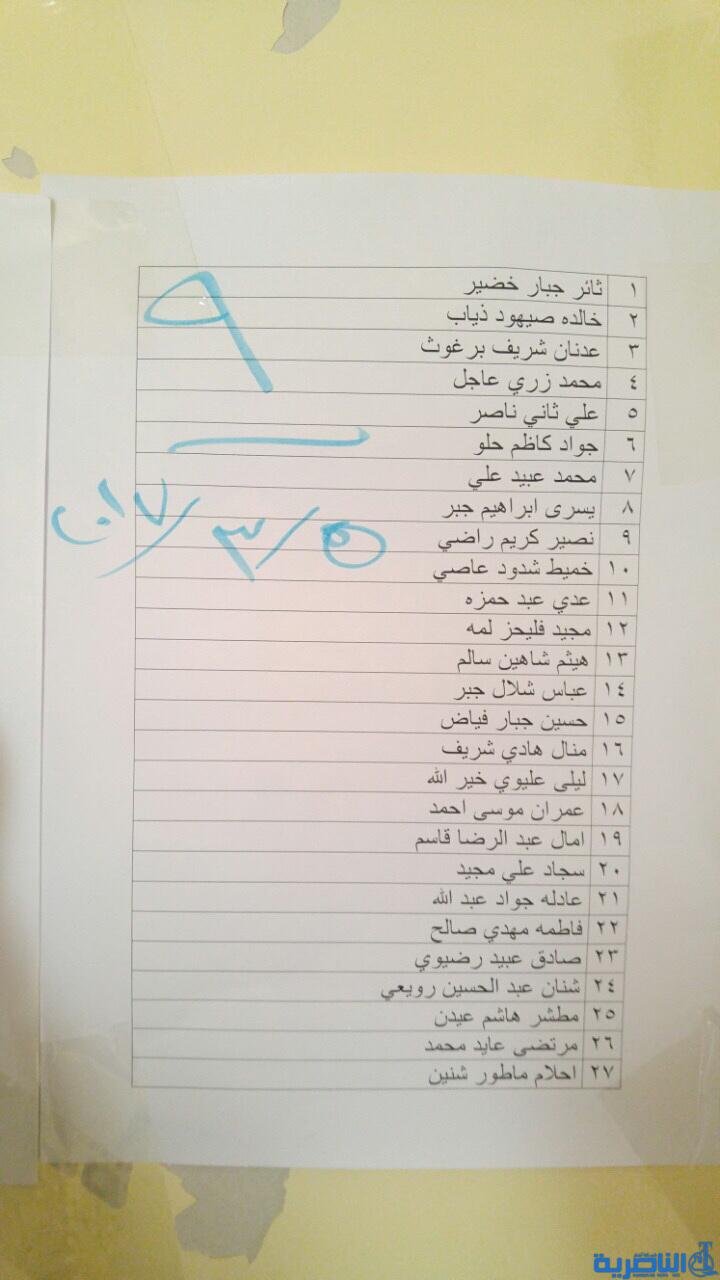 ١ ثائر جبار خضير
٢ خالده صيهود ذياب
٣ عدنان شريف برغوث
٤ محمد زري عاجل
٥ علي ثاني ناصر
٦ جواد كاظم حلو
٧ محمد عبيد علي
٨ يسرى ابراهيم جبر
٩ نصير كريم راضي
١٠ خميط شدود عاصي
١١ عدي عبد حمزه
١٢ مجيد فليحز لمه
١٣ هيثم شاهين سالم
١٤ عباس شلال جبر
١٥ حسين جبار فياض
١٦ منال هادي شريف
١٧ ليلى عليوي خير الله
١٨ عمران موسى احمد
١٩ امال عبد الرضا قاسم
٢٠ سجاد علي مجيد
٢١ عادله جواد عبد الله
٢٢ فاطمه مهدي صالح
٢٣ صادق عبيد رضيوي
٢٤ شنان عبد الحسين رويعي
٢٥ مطشر هاشم عيدن
٢٦ مرتضى عايد محمد
٢٧ احلام ماطور شنين
٩
٥/٣/٢٠١٧
الناصرية